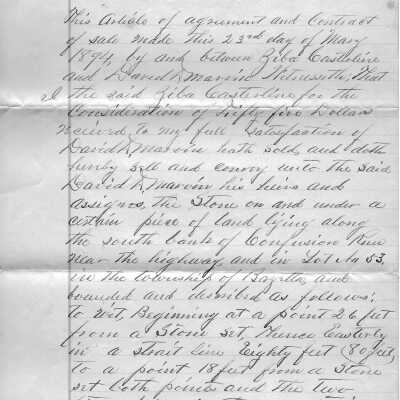 This Article of agreement and Contract
of sale made this 23rd day of May
1894, by and between Ziba Casterline
and David D. Marvin Witnesseth, That
I the said Ziba Casterline for the
Consideration of Fifty five Dollars
received to my full Satisfaction of
David D. Marvin hath sold, and doth
hereby sell and convey unto the said
David D. Marvin his heirs and
assignes, the Stone on and under a
certain piece of land lying along
the south bank of Confusion River
near the highway, and in Lot No 53,
in the township of Bazetta, and
bounded and described as follows:
to wit, Beginning at a point 26 feet
from a Stone set, thence Easterly
in a strait line Eighty feet (80 feet,
to a point 18 feet from a Stone
set both points and the two